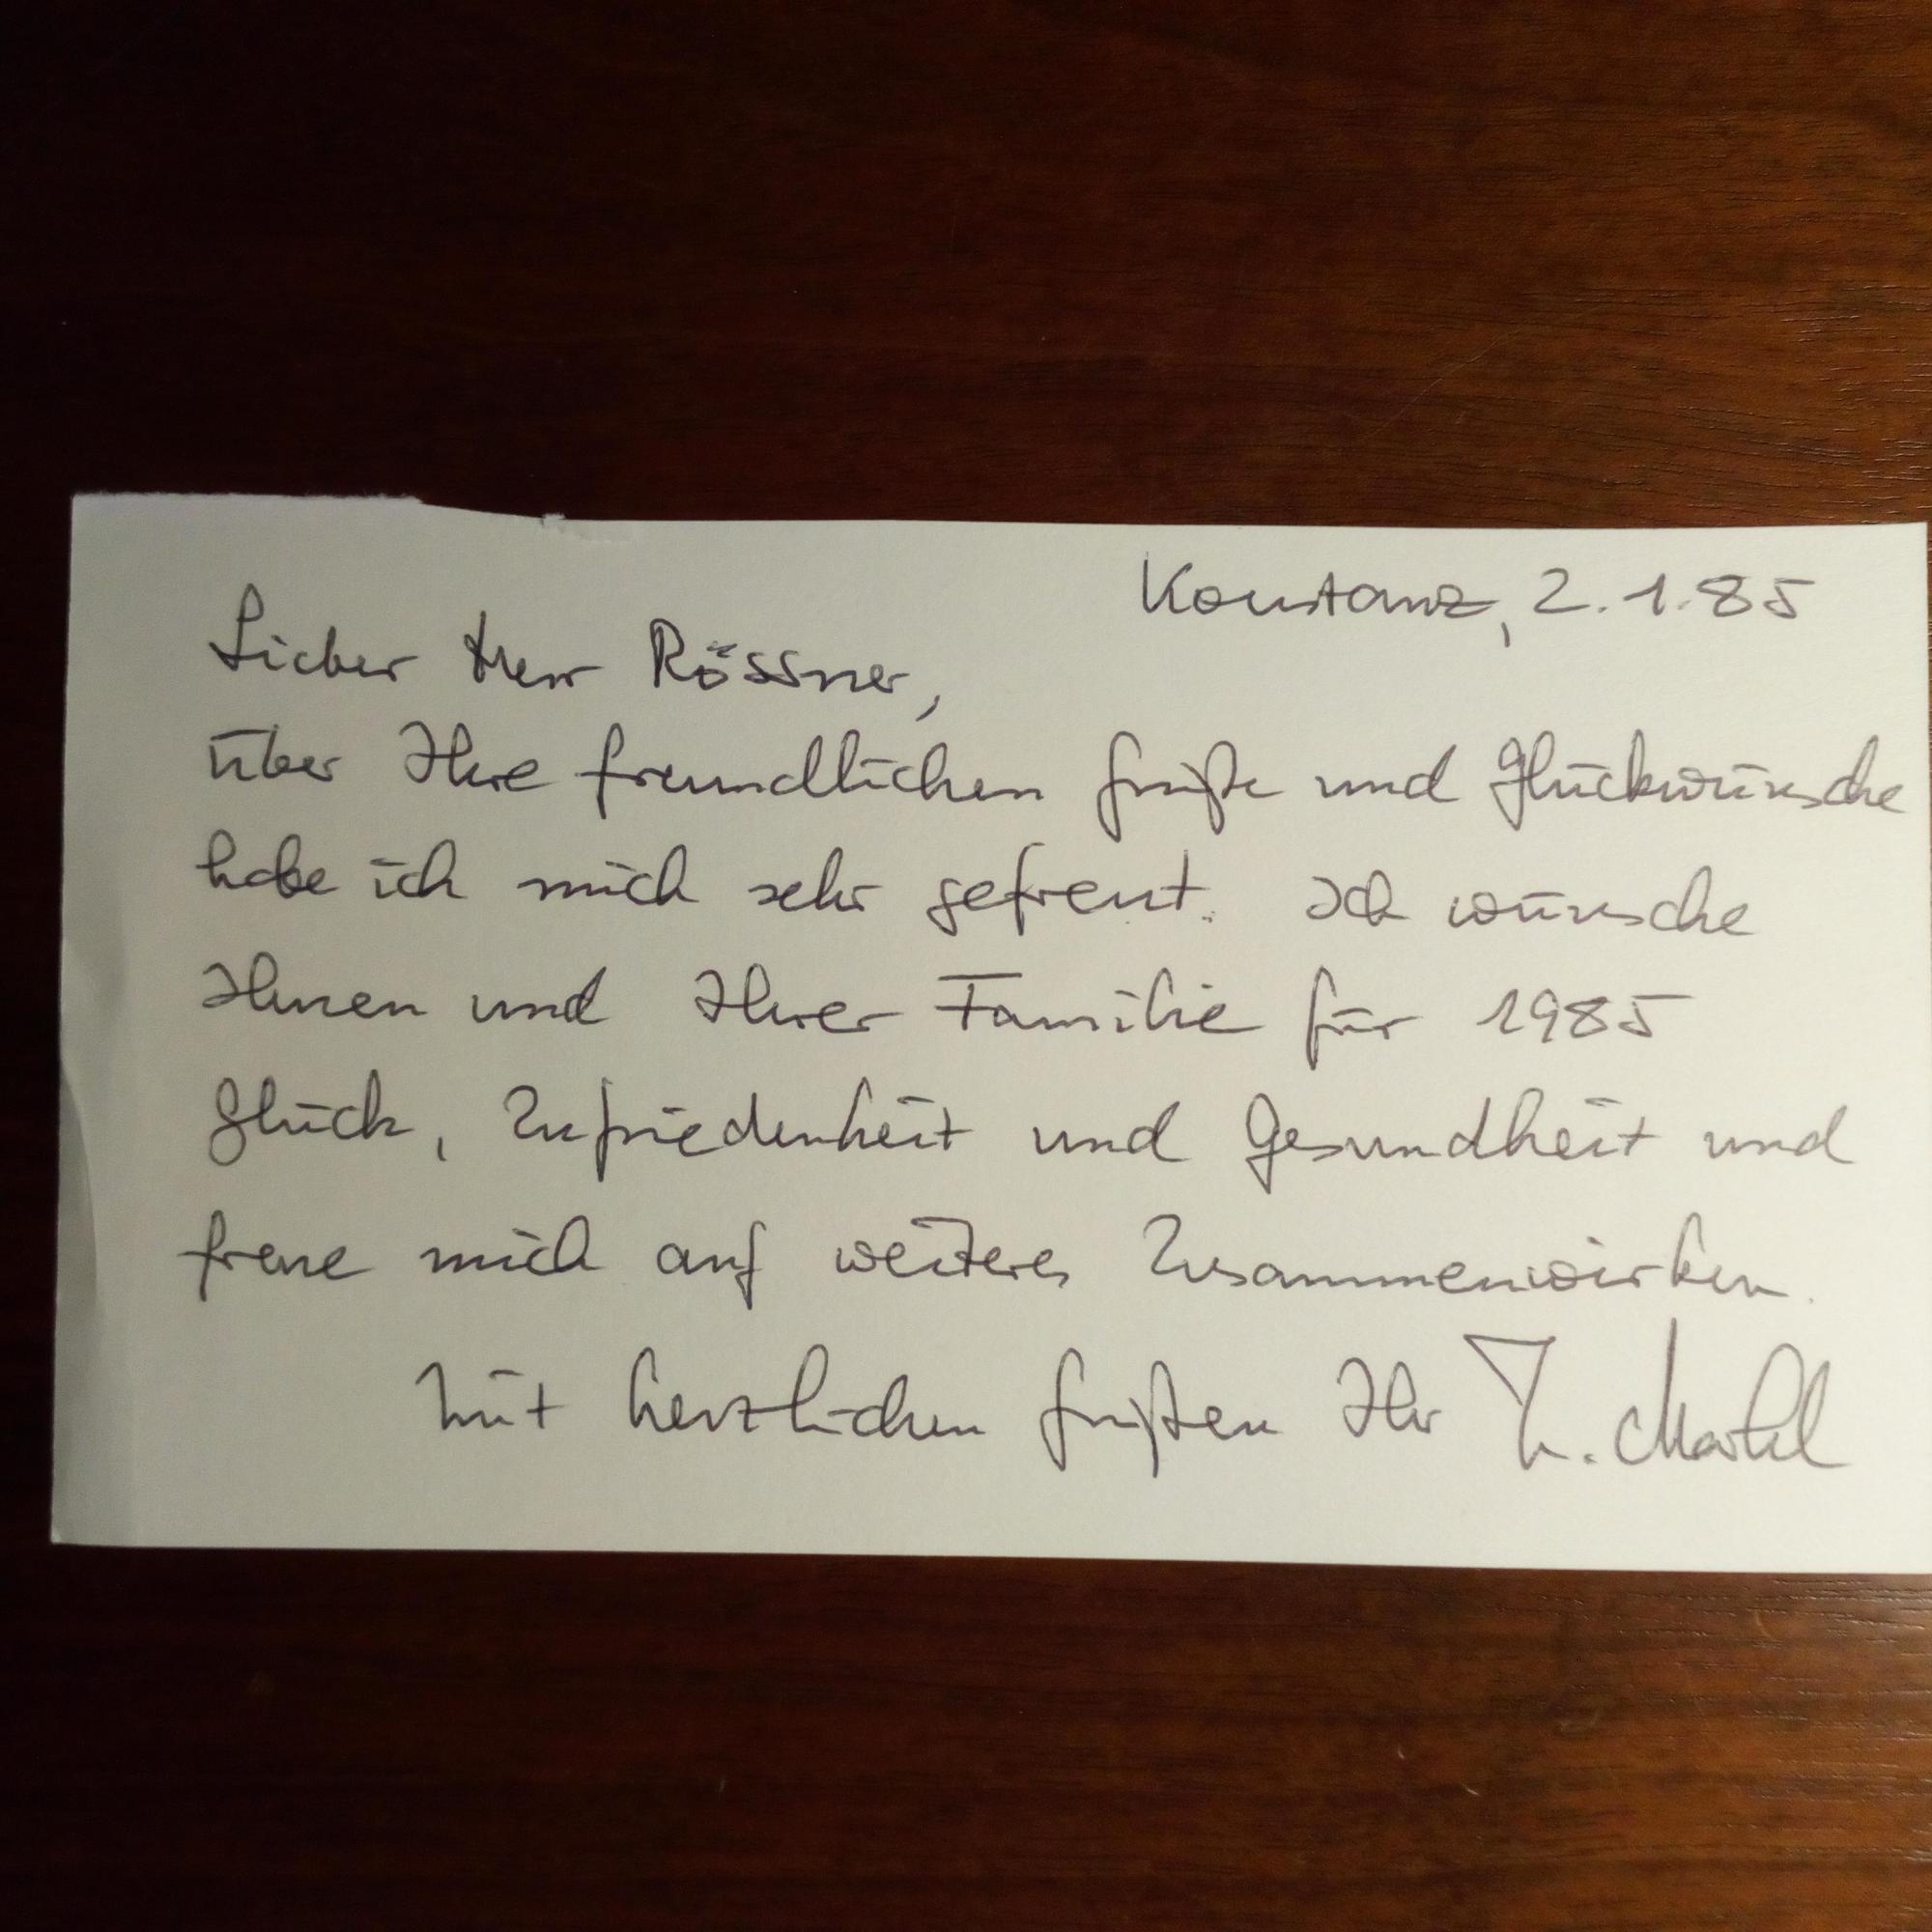 Konstanz, 2.1.85
Lieber Herr Rössner,
über Ihre freundlichen Grüße und Glückwünsche
habe ich mich sehr gefreut. Ich wünsche
Ihnen und Ihrer Familie für 1985
Glück, Zufriedenheit und Gesundheit und
freue mich auf weiteres Zusammenwirken.
Mit herzlichen Grüßen Ihr